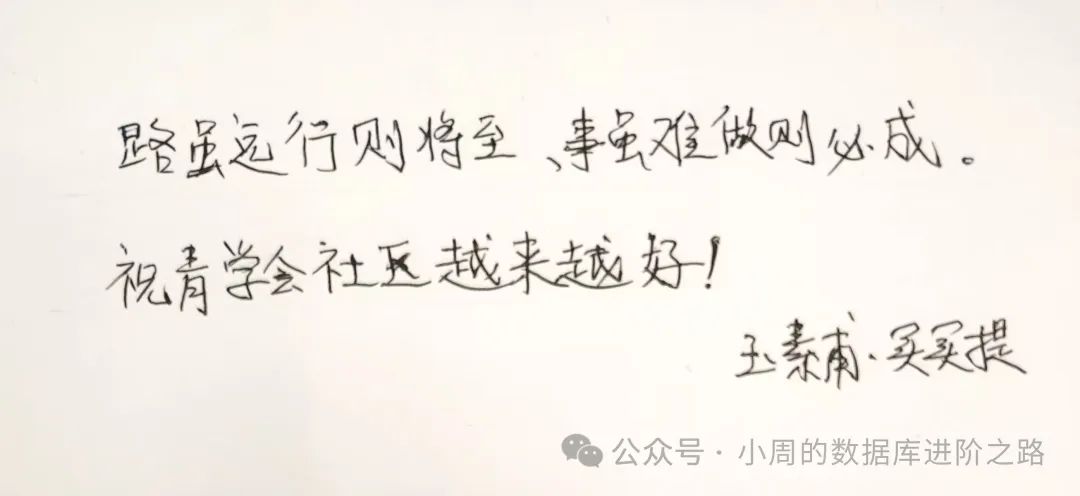 路虽远行则将至、事虽难做则必成。
祝青学会社区越来越好！
玉素甫·买买提
公众号·小周的数据库进阶之路